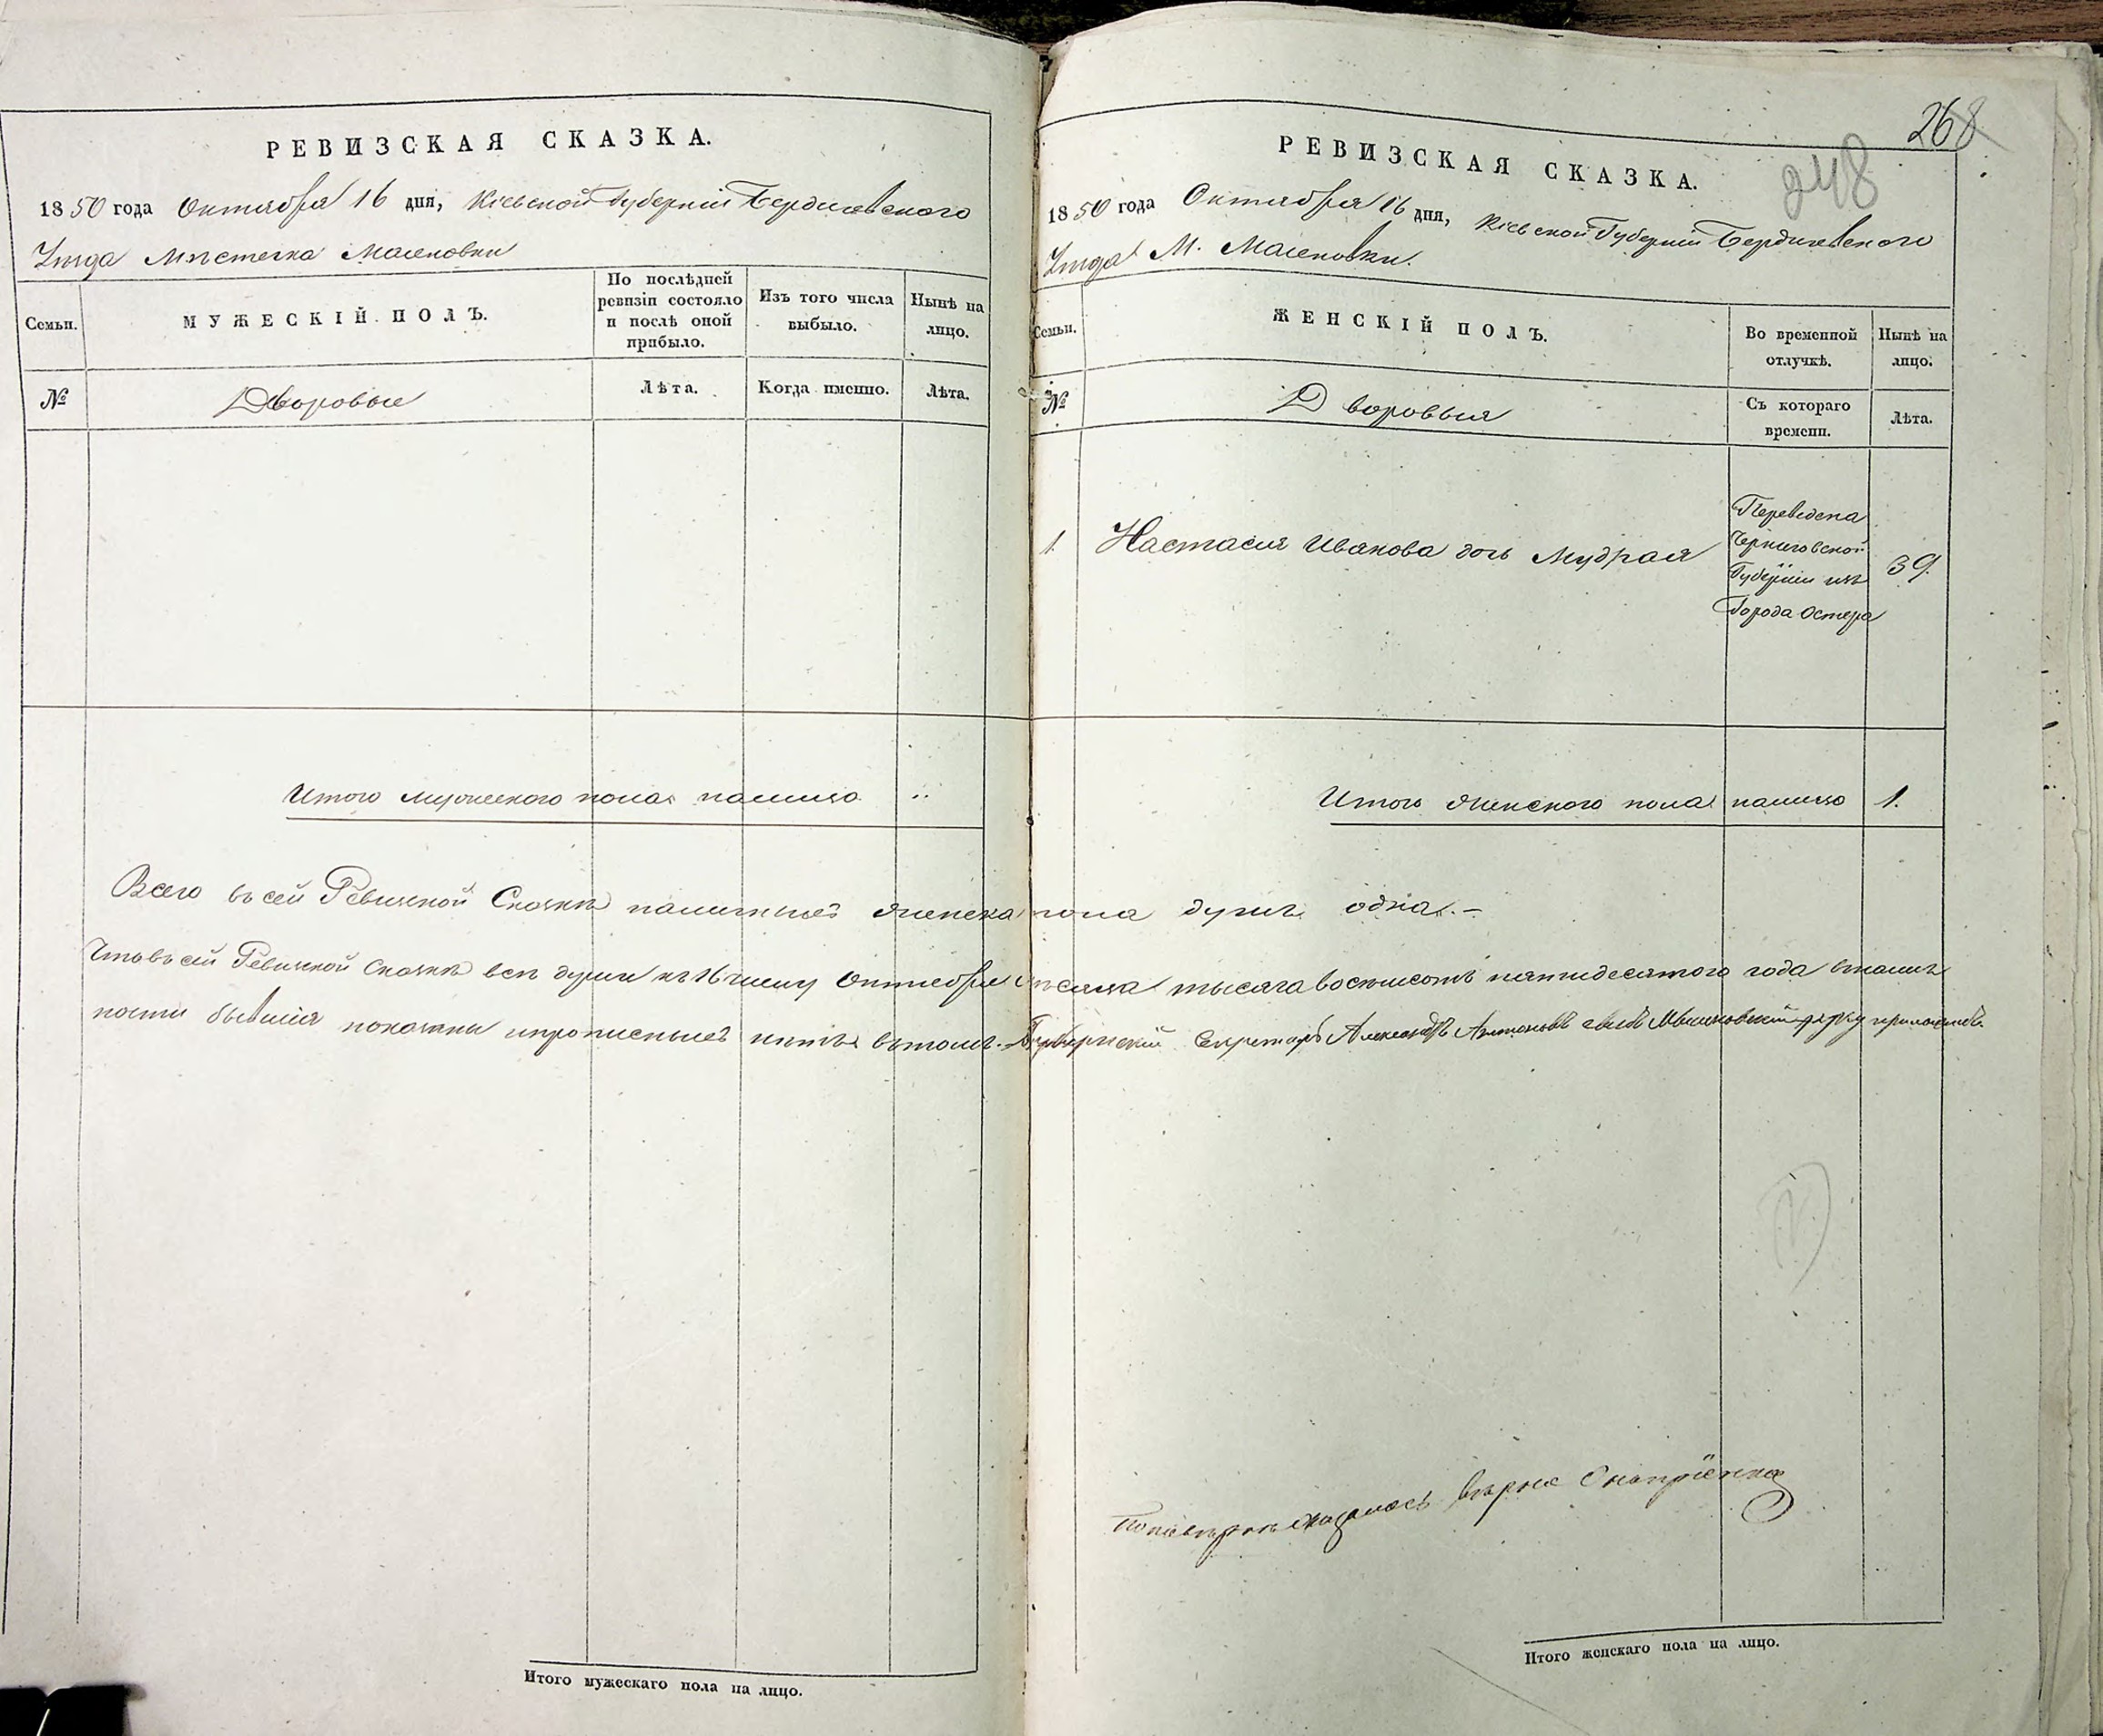 РЕВИЗСКАЯ СКАЗКА.
1850 года Октября 16 дня, Кіевской Губерніи Бердичевскаго
Уѣзда Мѣстечка Масеновки
Семьи.
МУЖЕСКІЙ ПОЛЪ.
По послѣдней
ревизіи состояло
и послѣ оной
прибыло.
Изъ того числа
выбыло.
Нынѣ на
лицо.
№
Дворовые
Лѣта.
Когда именно.
Лѣта.
Итого мужеского пола налицо
Итого мужескаго пола на лицо.
268
248
РЕВИЗСКАЯ СКАЗКА.
1850 года Октября 16 дня, Кіевской Губерніи Бердичевского
Уѣзда М. Масеновки.
Семьи.
ЖЕНСКІЙ ПОЛЪ.
Во временной
отлучкѣ.
Нынѣ на
лицо.
№
Дворовыя
Съ котораго
времени.
Лѣта.
1. Настасия Иванова дочь Мудрая
Переведена
Черниговской
Губерніи изъ
Города Остера
39.
Итого женского пола налицо 1.
Всего въ сей Ревизкой Сказкѣ наличныхъ женска пола душъ одна.-
Что въ сей Ревизкой Сказкѣ всѣ души къ 16 числу Октября мѣсяца тысяча восемьсотъ пятидесятого года в налич
ности бывшія показаны и прописныхъ нѣтъ в томъ. Губернский Секретарь Александръ Антоновъ сынъ руку приложилъ.
По повѣркѣ оказалось вѣрно
Итого женскаго пола на лицо.